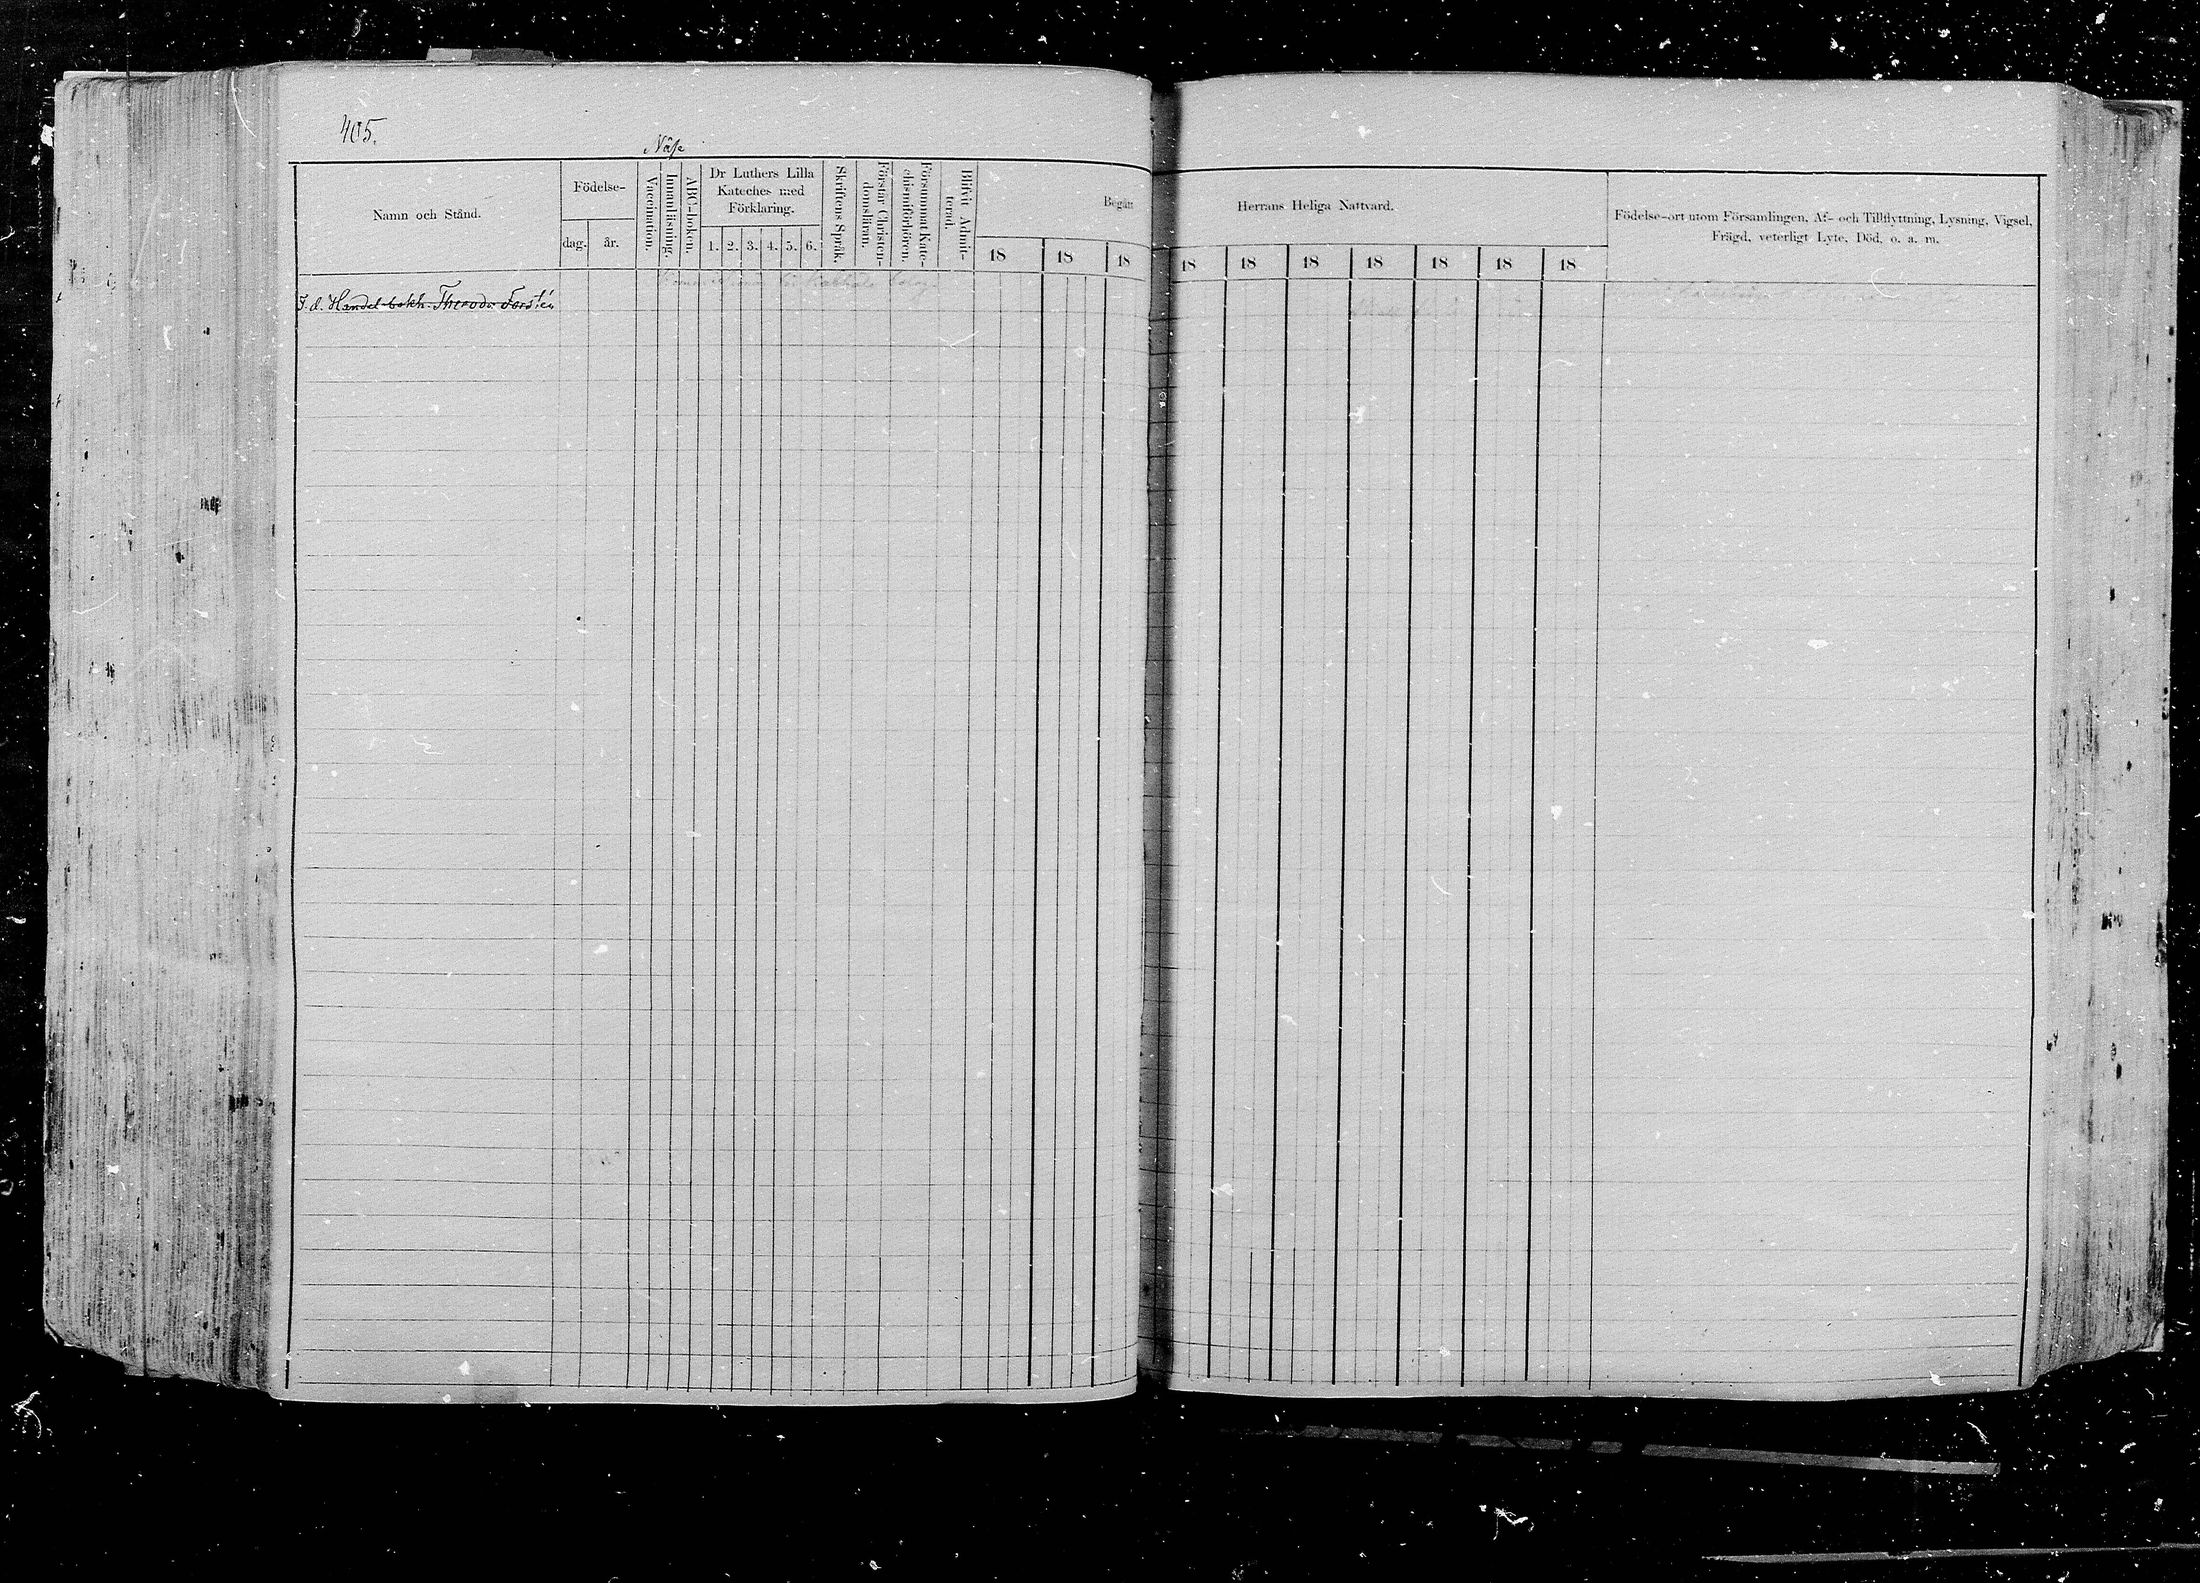 405.
Näse
Namn och Stånd.
Födelse-
dag.
år.
Vaccination.
Innanläsning.
ABC-boken.
Dr Luthers Lilla
Kateches med
Förklaring.
1. 2. 3. 4. 5. 6.
Skriftens Språk.
Förstår Christen-
domsläran.
Försummat Kate-
chismiförhören.
Blifvit Admit-
terad.
Begått
18 18 18
Herrans Heliga Nattvard.
18 18 18 18 18 18 18
Födelse-ort utom Församlingen, Af- och Tillflyttning, Lysning, Vigsel,
Frägd, veterligt Lyte, Död, o. a. m.
F. d. Handel bokh. Theodor Forstén